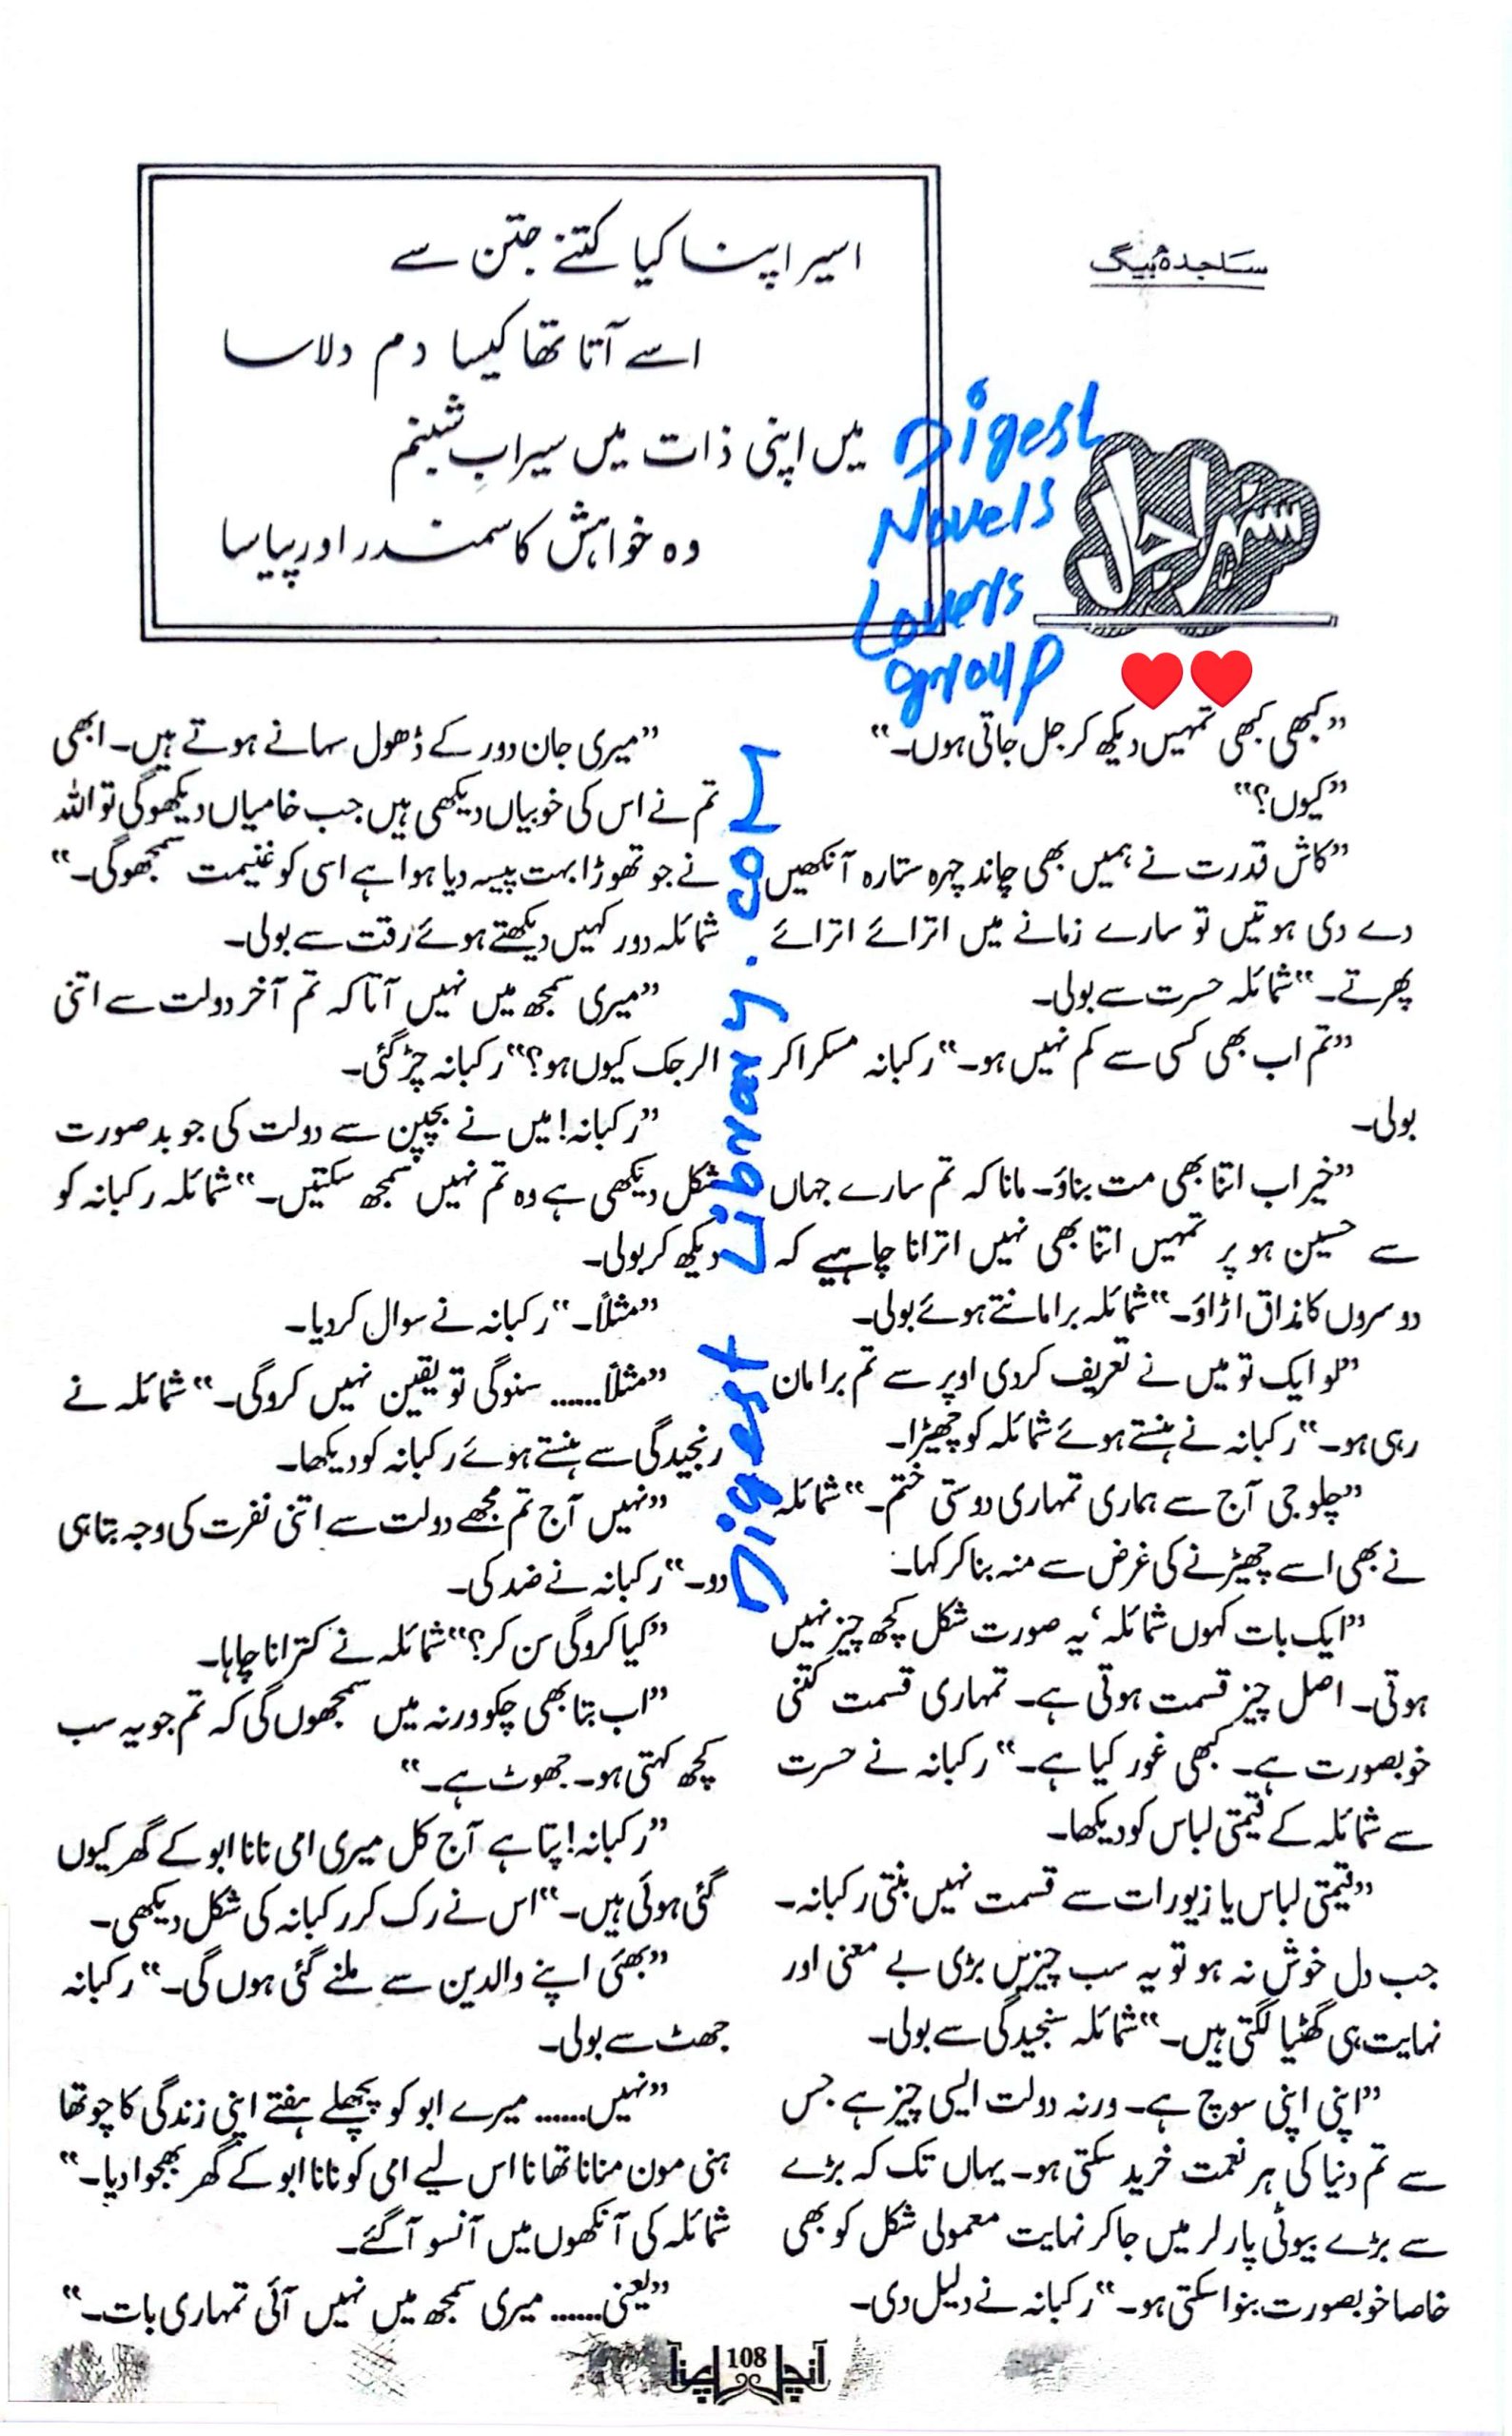 ساجدہ بیگ
سنہرا جال
اسیر اپنا کیا کتنے جتن سے
اسے آتا تھا کیسا دم دلاسا
میں اپنی ذات میں سیراب شبنم
وہ خواہش کا سمندر اور پیاسا
Digest
Novels
Lovers
group
❤❤
”کبھی کبھی تمہیں دیکھ کر جل جاتی ہوں۔“
”کیوں؟“
”کاش قدرت نے ہمیں بھی چاند چہرہ ستارہ آنکھیں
دے دی ہوتیں تو سارے زمانے میں اترائے اترائے
پھرتے۔“ شمائلہ حسرت سے بولی۔
”تم اب بھی کسی سے کم نہیں ہو۔“ رکبانہ مسکرا کر
بولی۔
”خیر اب اتنا بھی مت بناؤ۔ مانا کہ تم سارے جہاں
سے حسین ہو پر تمہیں اتنا بھی نہیں اترانا چاہیے کہ
دوسروں کا مذاق اڑاؤ۔“ شمائلہ برا مانتے ہوئے بولی۔
”لو ایک تو میں نے تعریف کردی اوپر سے تم برا مان
رہی ہو۔“ رکبانہ نے ہنستے ہوئے شمائلہ کو چھیڑا۔
”چلو جی آج سے ہماری تمہاری دوستی ختم۔“ شمائلہ
نے بھی اسے چھیڑنے کی غرض سے منہ بنا کر کہا۔
”ایک بات کہوں شمائلہ‘ یہ صورت شکل کچھ چیز نہیں
ہوتی۔ اصل چیز قسمت ہوتی ہے۔ تمہاری قسمت کتنی
خوبصورت ہے۔ کبھی غور کیا ہے۔“ رکبانہ نے حسرت
سے شمائلہ کے قیمتی لباس کو دیکھا۔
”قیمتی لباس یا زیورات سے قسمت نہیں بنتی رکبانہ۔
جب دل خوش نہ ہو تو یہ سب چیزیں بڑی بے معنی اور
نہایت ہی گھٹیا لگتی ہیں۔“ شمائلہ سنجیدگی سے بولی۔
”اپنی اپنی سوچ ہے۔ ورنہ دولت ایسی چیز ہے جس
سے تم دنیا کی ہر نعمت خرید سکتی ہو۔ یہاں تک کہ بڑے
سے بڑے بیوٹی پارلر میں جا کر نہایت معمولی شکل کو بھی
خاصا خوبصورت بنوا سکتی ہو۔“ رکبانہ نے دلیل دی۔
”میری جان دور کے ڈھول سہانے ہوتے ہیں۔ ابھی
تم نے اس کی خوبیاں دیکھی ہیں جب خامیاں دیکھو گی تو اللہ
نے جو تھوڑا بہت پیسہ دیا ہوا ہے اسی کو غنیمت سمجھو گی۔“
شمائلہ دور کہیں دیکھتے ہوئے رقت سے بولی۔
”میری سمجھ میں نہیں آتا کہ تم آخر دولت سے اتنی
الرجک کیوں ہو؟“ رکبانہ چڑ گئی۔
”رکبانہ! میں نے بچپن سے دولت کی جو بد صورت
شکل دیکھی ہے وہ تم نہیں سمجھ سکتیں۔“ شمائلہ رکبانہ کو
دیکھ کر بولی۔
”مثلاً۔“ رکبانہ نے سوال کردیا۔
”مثلاً...... سنو گی تو یقین نہیں کرو گی۔“ شمائلہ نے
رنجیدگی سے ہنستے ہوئے رکبانہ کو دیکھا۔
”نہیں آج تم مجھے دولت سے اتنی نفرت کی وجہ بتا ہی
دو۔“ رکبانہ نے ضد کی۔
”کیا کرو گی سن کر؟“ شمائلہ نے کترانا چاہا۔
”اب بتا بھی چکو ورنہ میں سمجھوں گی کہ تم جو یہ سب
کچھ کہتی ہو۔ جھوٹ ہے۔“
”رکبانہ! پتا ہے آج کل میری امی نانا ابو کے گھر کیوں
گئی ہوئی ہیں۔“ اس نے رک کر رکبانہ کی شکل دیکھی۔
”بھئی اپنے والدین سے ملنے گئی ہوں گی۔“ رکبانہ
جھٹ سے بولی۔
”نہیں...... میرے ابو کو پچھلے ہفتے اپنی زندگی کا چوتھا
ہنی مون منانا تھا نا اس لیے امی کو نانا ابو کے گھر بھجوا دیا۔“
شمائلہ کی آنکھوں میں آنسو آ گئے۔
”یعنی...... میری سمجھ میں نہیں آئی تمہاری بات۔“
Digest Library.com
آنچل 108 اپنا